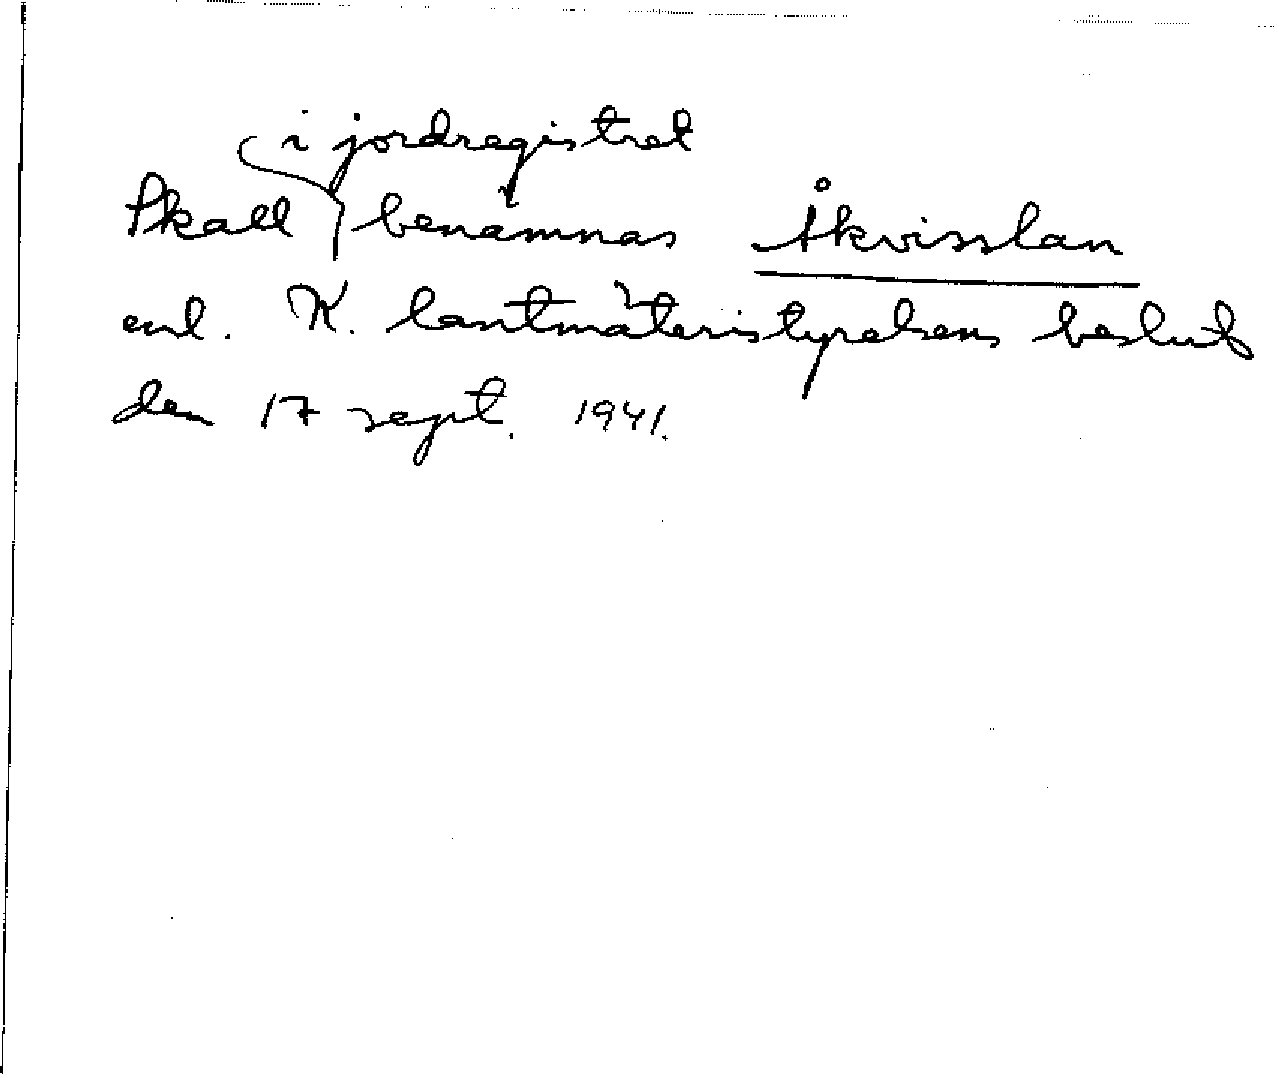 i jordregistret
Skall benämnas Åkvisslan
enl. K. lantmäteristyrelsens beslut
den 17 sept. 1941.